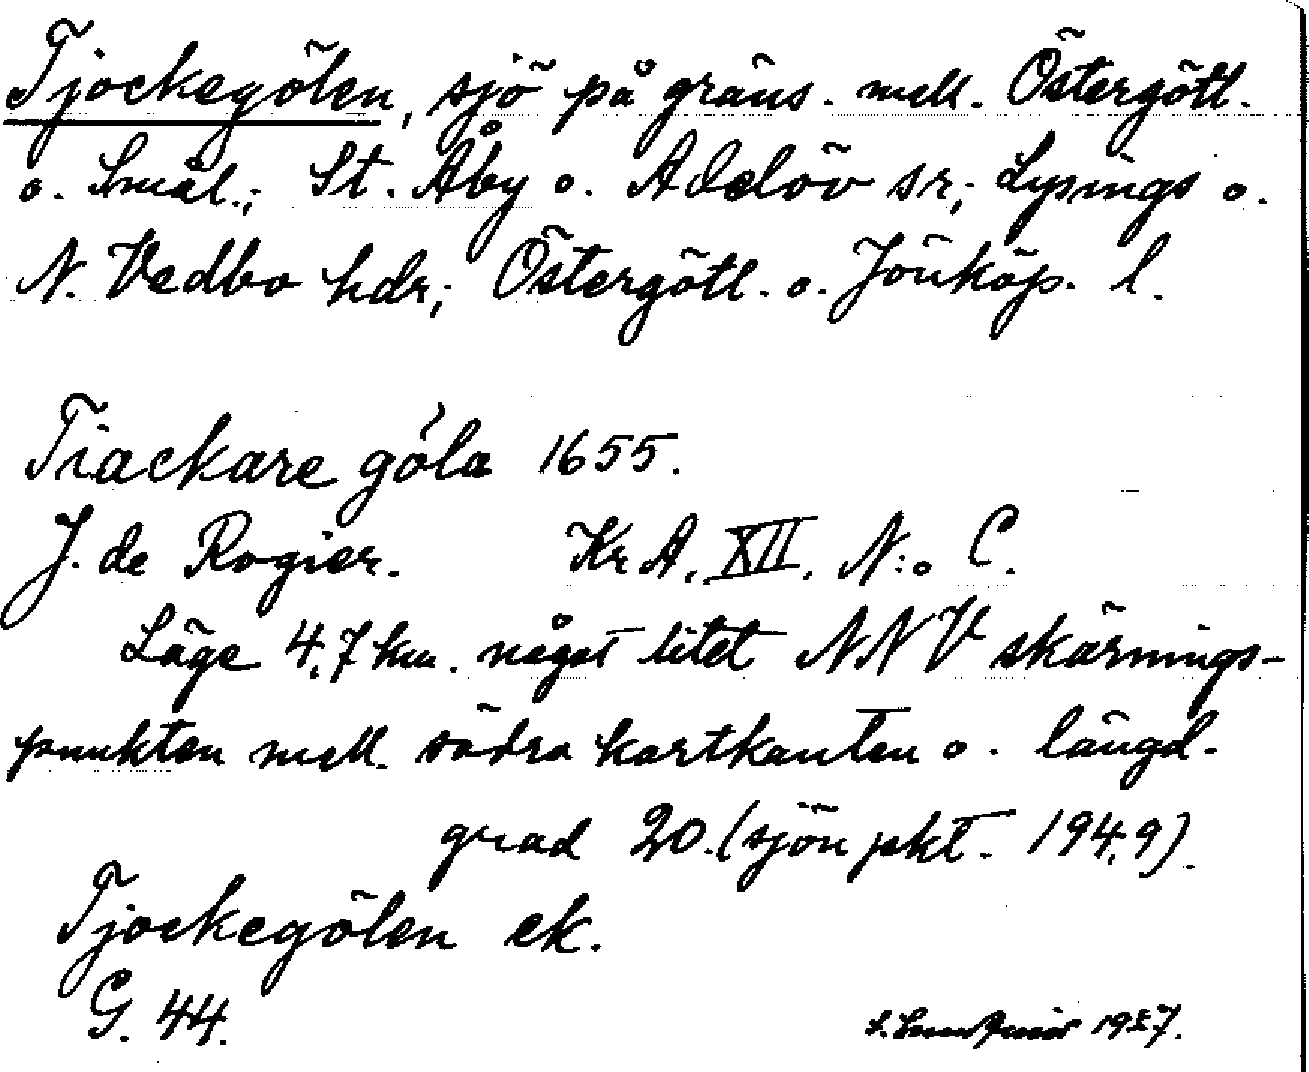 Tjockegölen, sjö på gräns. mell. Östergötl.
o. Smål.; St. Åby o. Adelöv sr; Lysings o.
N. Vedbo hdr; Östergötl. o. Jönköp. l.
Tiackare göla 1655.
J. de Rogier. KrA. XII. N:o C.
Läge 4,7 km. något litet NNV skärnings-
punkten mell. södra kartkanten o. längd-
grad 20. (sjön pkt. 194,9).
Tjockegölen ek.
G. 44.
1937.